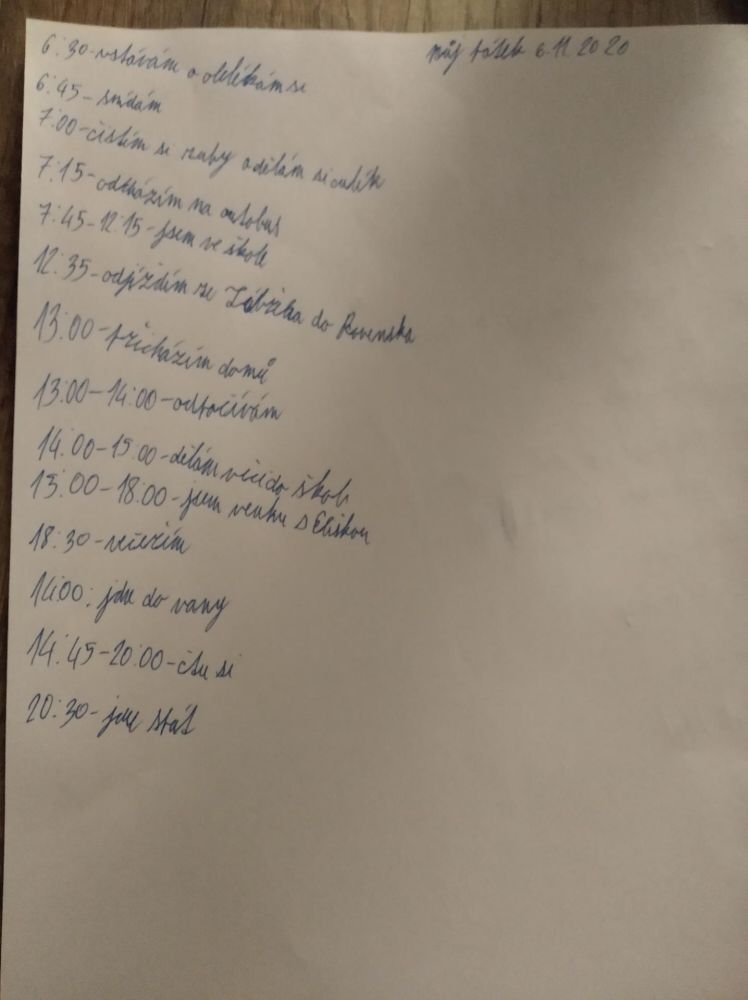 můj pátek 6.11.2020
6:30-vstávám a oblékám se
6:45-snídám
7:00-čistím si zuby a dělám si culík
7:15-odcházím na autobus
7:45-12:15-jsem ve škole
12:35-odjíždím ze Zábřeha do Rovenska
13:00-přicházím domů
13:00-14:00-odpočívám
14:00-15:00-dělám věci do školy
15:00-18:00-jsem venku s Eliškou
18:30-večeřím
14:00: jdu do vany
14:45-20:00-čtu si
20:30-jdu spát